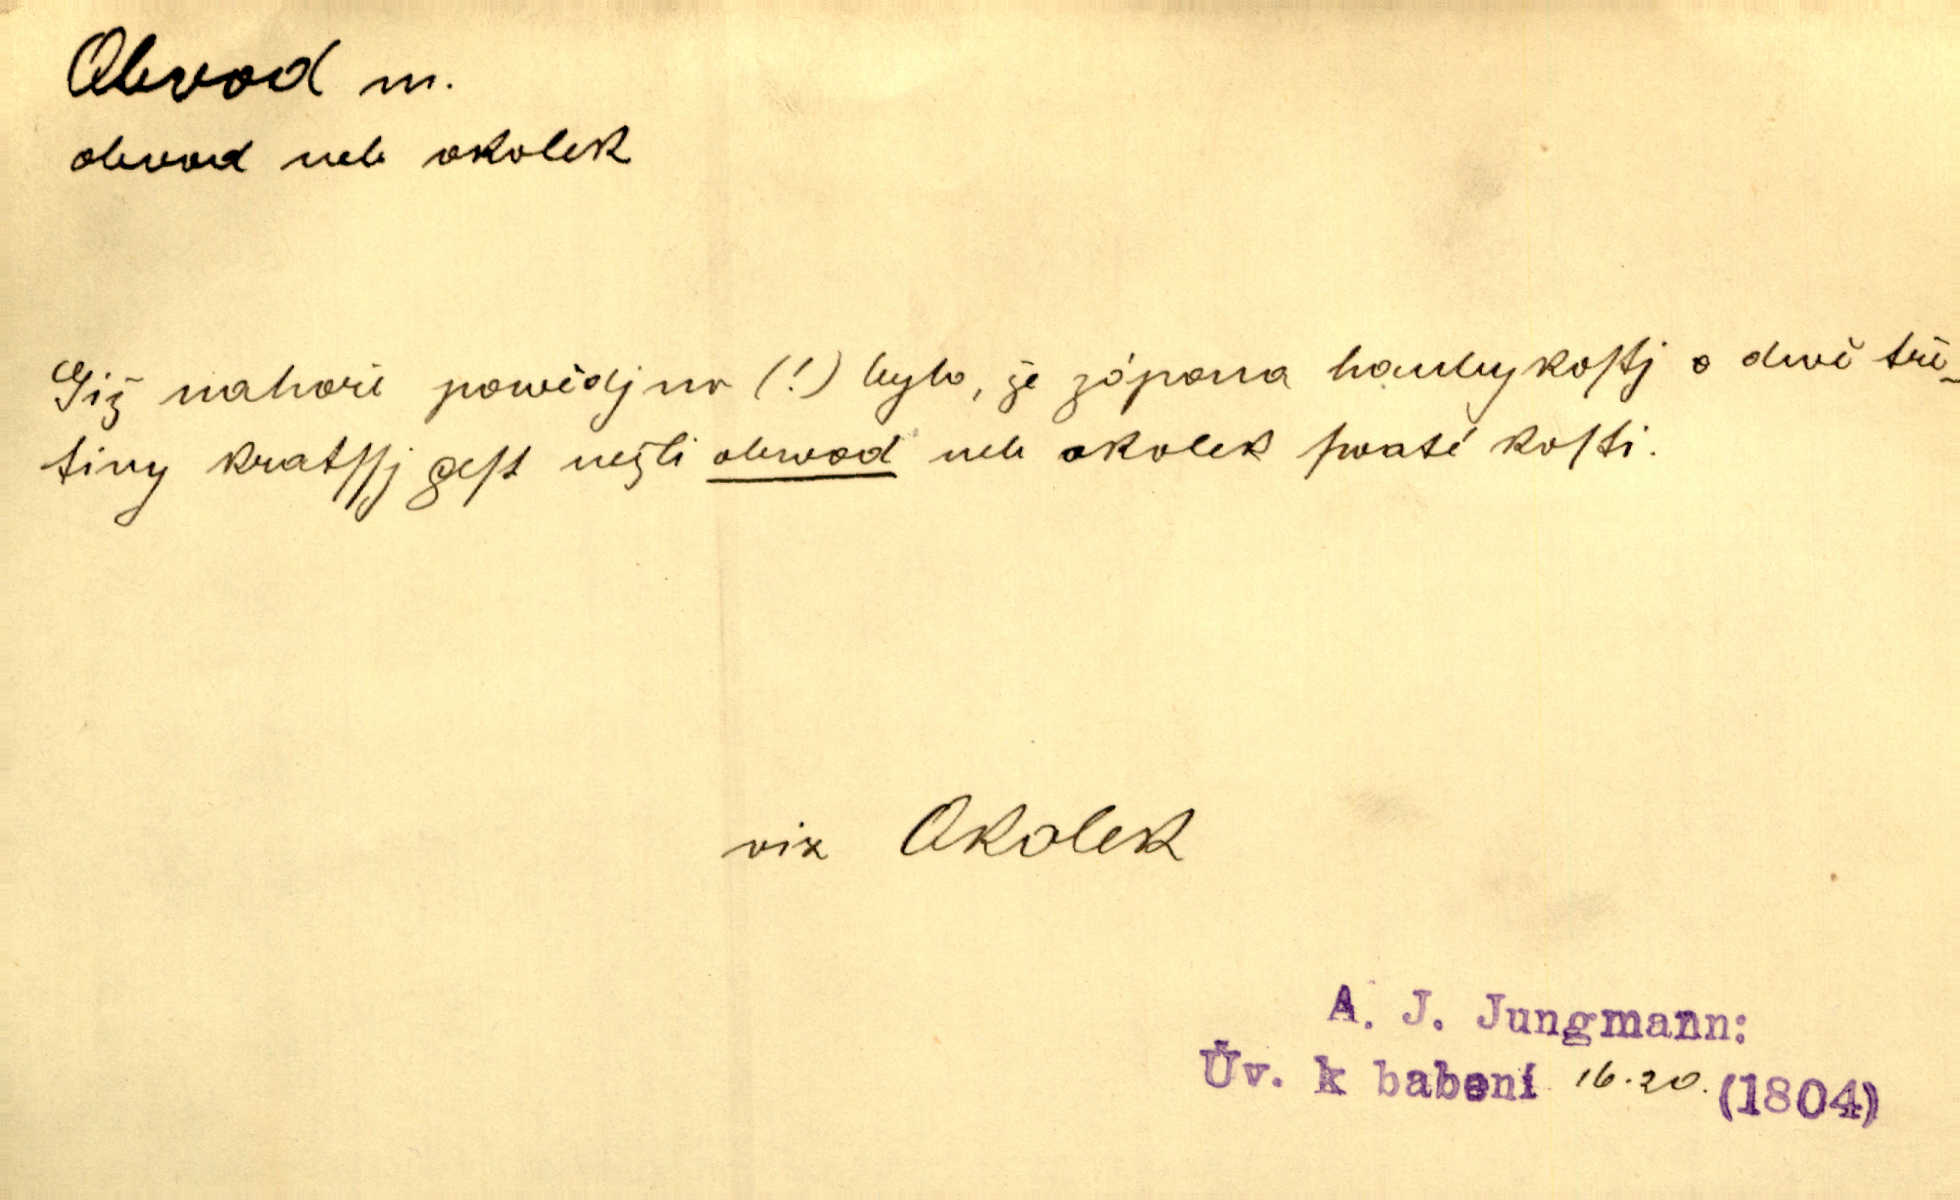 Obvod m.
obvod neb okolek
Giž nahoře powědjno (!) bylo, že zápona haubykostj o dwě tře-
tiny kratssj gest nežli obwod neb okolek swaté kosti.
viz Okolek
A. J. Jungmann:
Úv. k babení 16.20. (1804)